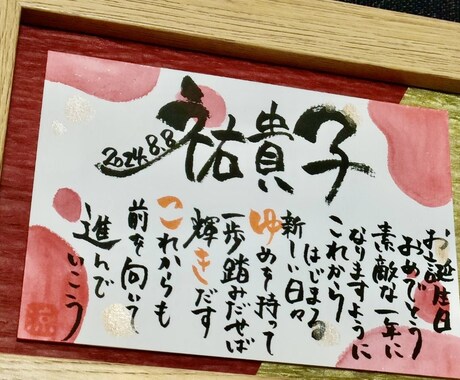 祐貴子
2024.8.8
お誕生日
おめでとう
素敵な一年に
なりますように
これから
はじまる
新しい日々
ゆめを持って
一歩踏みだせば
輝きだす
これからも
前を向いて
進んで
いこう